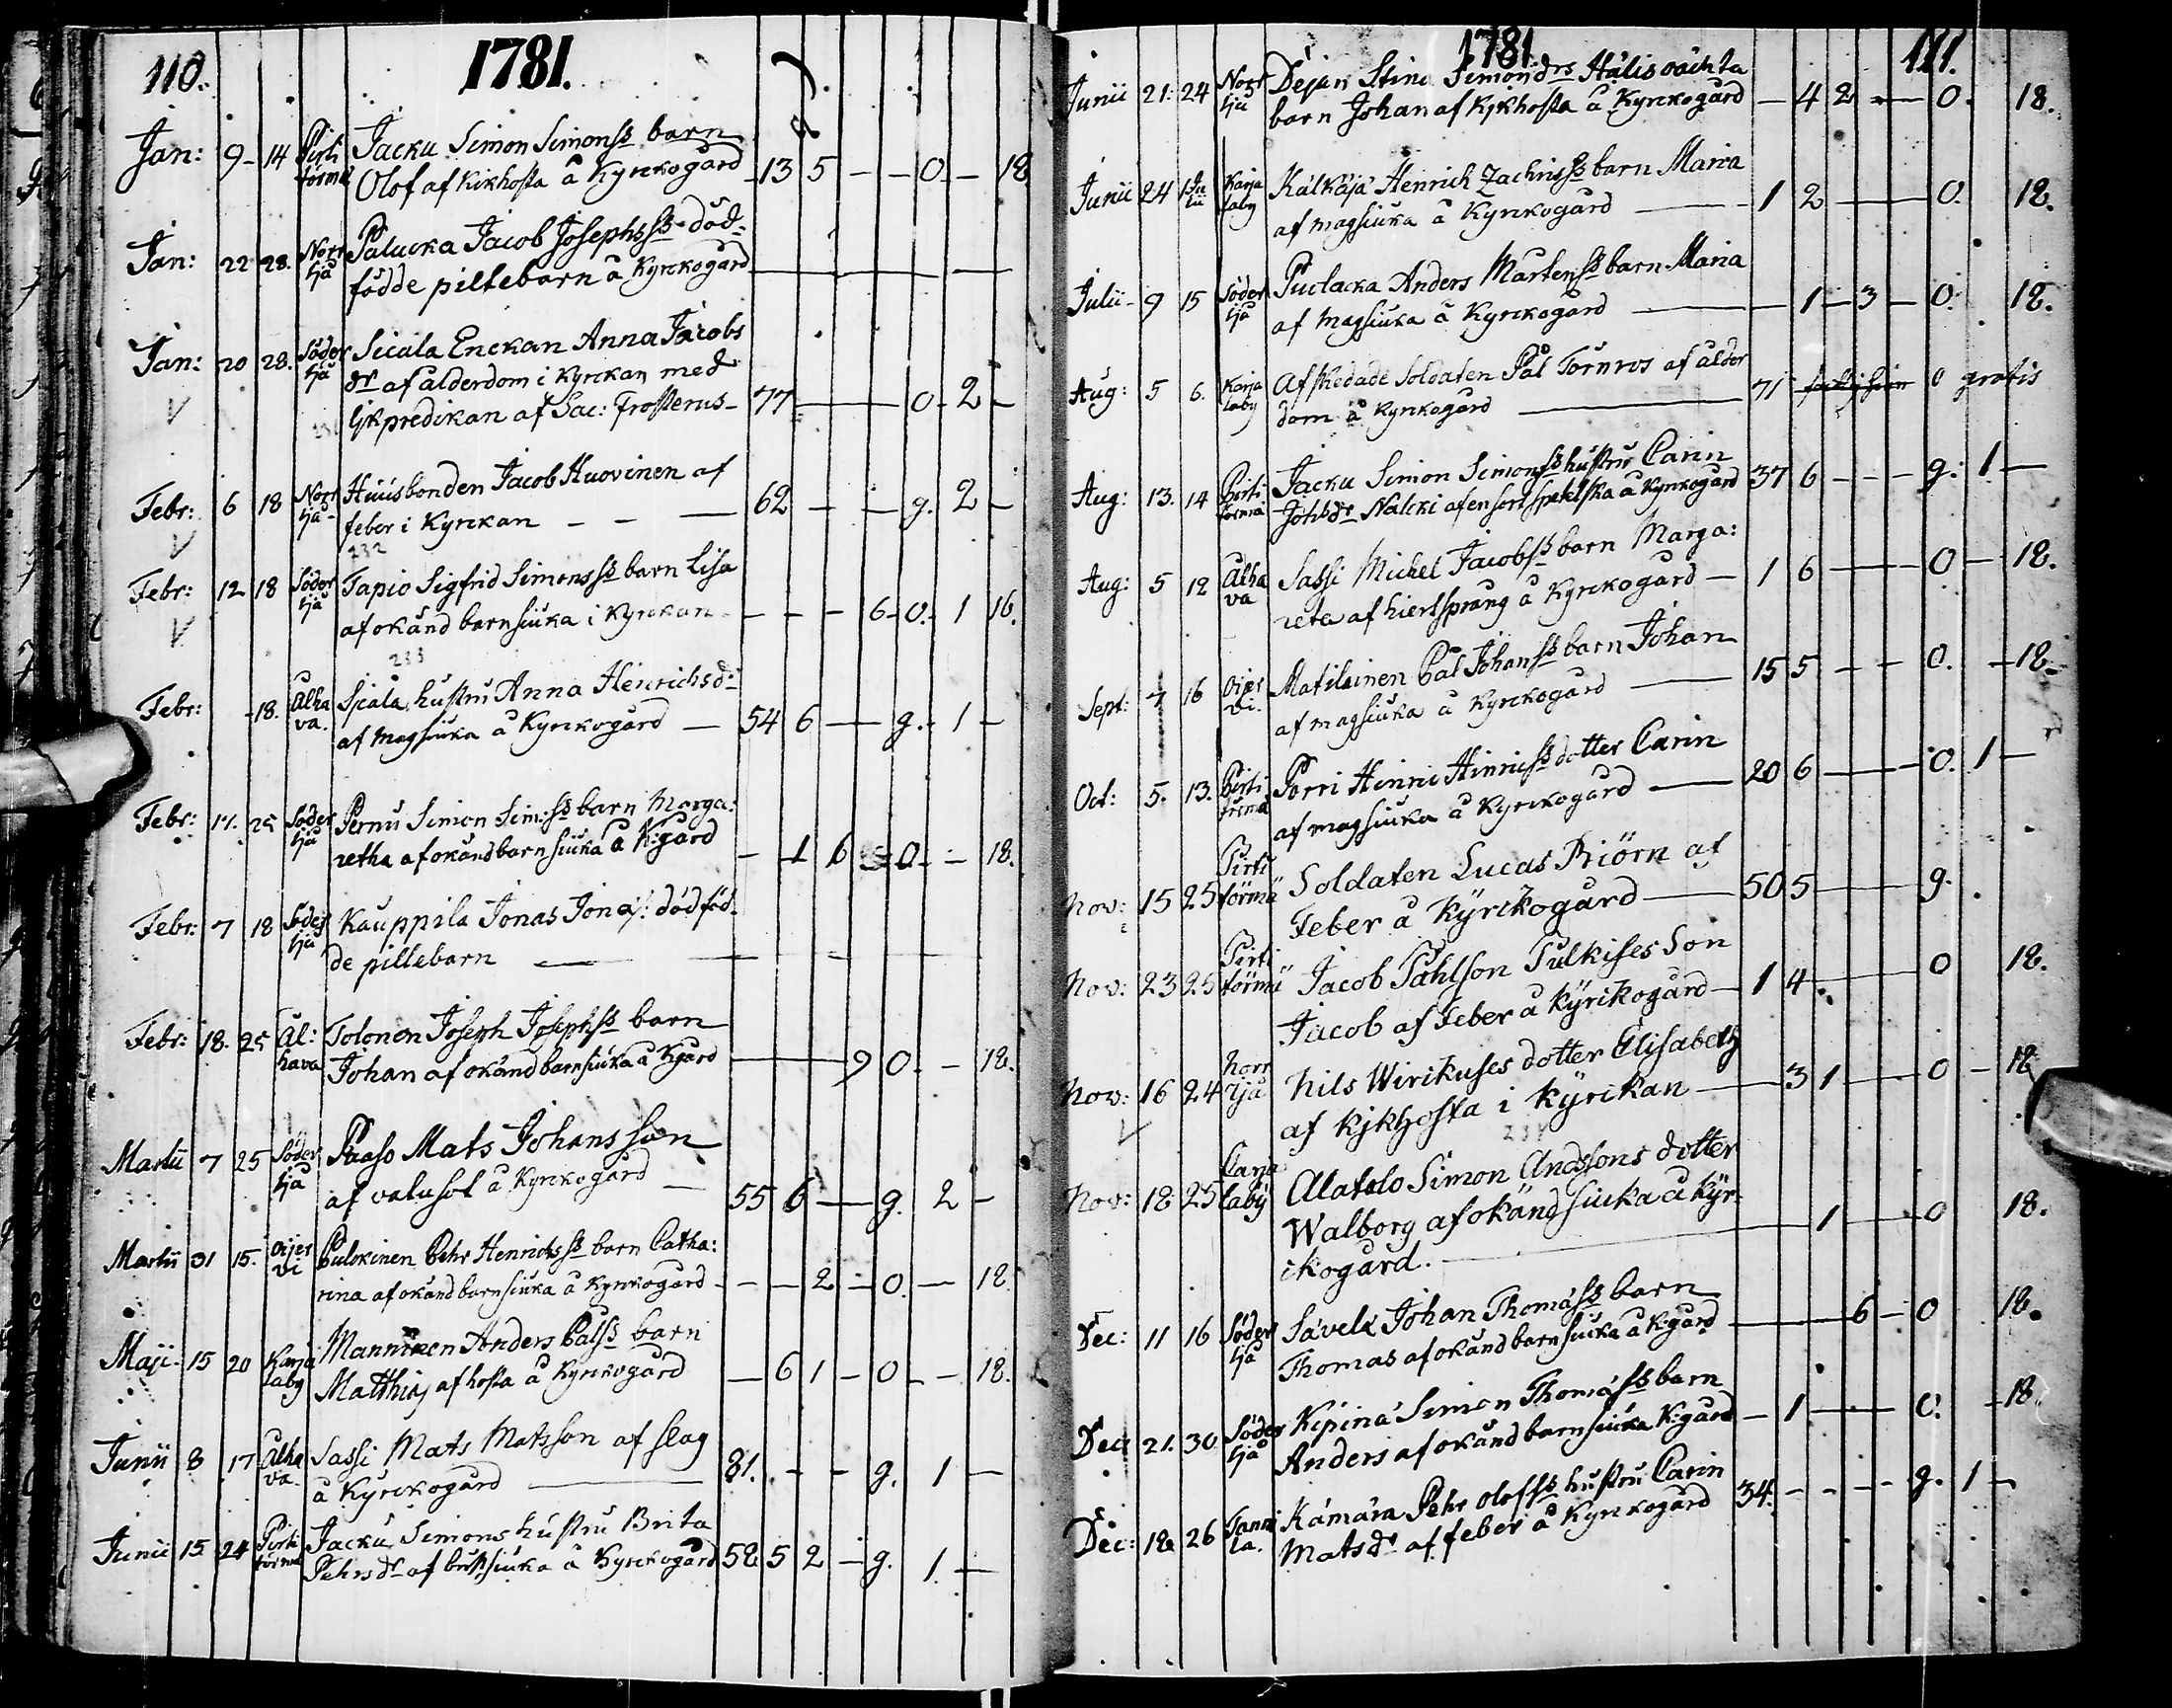 110.
1781.
Jan: 9 - 14 Pirti Jacku Simon Simonss barn
törmä Olof af Kikhosta å Kyrckogård 13 5 - - 0 - 18.
Jan: 22 28. Norr Palucka Jacob Josephsss död-
ljå födde piltebarn å Kyrckogård
Jan: 20 28. Söder Sicala Enckan Anna Jacobs
ljå dr af ålderdom i Kyrckan med
ljkpredikan af Sac: Frosterus - 77 - 0 - 2 -
Febr: 6 18 Norr Huusbonden Jacob Huovinen af
ljå feber i Kyrckan - - - 62 - - g. 2 -
232
Febr: 12 18 Söder Tapio Sigfrid Simonsss barn Lisa
ljå af okänd barnsiuka i Kyrckan - - - 6 - 0. - 1 16.
233
Febr: - 18. Alha Sicala hustru Anna Henrichsdr
va. af magsiuka å Kyrckogård - 54 6 - g. - 1 -
Febr: 17. 25 Söder Pernu Simon Sim:ss barn Marga:
ljå retha af okänd barnsiuka å K:gård - 1 6 - 0. - 18.
Febr: 7 18 Söder Kauppila Jonas Jonæ: dödföd-
ljå de piltebarn
Febr: 18. 25 Al: Tolonen Joseph Josephsss barn
hava Johan af okänd barnsiuka å Kgård - 9 0. - 18.
Martii 7 25 Söder Paaso Mats Johansson
ljå af valusot å Kyrckogård - 55 6 - g. 2 -
Martii 31 15. Oijer Pulckinen Pehr Henrichsss barn Catha:
vi rina af okänd barnsiuka å Kyrckogård - - - 2 - 0. - 18.
Maji 15 20 Karja Manninen Anders Pålss barn
laby Matthias af hosta å Kyrckogård - 6 1 - 0 - - 18.
Junii 8 17 Alha Sassi Mats Matsson af slag
va. å Kyrckogård - 81. - - g. 1 -
Junii 15 24 Pirti Jacku Simons hustru Brita
törmä Pehrsdr af bröstsiuka å Kyrckogård 58 5 2 - g. 1. -
1781.
111.
Junii 21. 24 Norr Dejan Stina Simonsdrs Hälisoächta
ljå barn Johan af Kjkhosta å Kyrckogård - 4 2 - 0. 18.
Junii 24 Ju Karja Kälkäjä Henrich Zachrisss barn Maria
lii laby af magsiuka å Kyrckogård - 1 2 - 0. 18.
Julii - 9 15 Söder Puolacka Anders Mårtensss barn Maria
ljå af magsiuka å Kyrckogård - 1 - 3 - 0. 18.
Aug: 5 6. Karja Afskedade Soldaten Pål Törnros af ålder
laby dom å Kyrckogård - 71 0 gratis
Aug: 13. 14 Pirti Jacku Simon Simonsss hustru Carin
törmä Johsdr Nalcki af en sort spetelska å Kyrckogård 37 6 - - - g: 1 -
Aug: 5 12 Alha Sassi Michel Jacobsss barn Marga:
va reta af hiertsprång å Kyrckogård - 1 6 - 0 - 18.
Sept: 7 16 Oijer Matilainen Pål Johansss barn Johan
vi. af magsiuka å Kyrckogård - 15 5 - - 0. - 18.
Oct: 5. 13. Pirti Porri Hinric Hinricsss dotter Carin
törmä af magsiuka å Kyrckogård - 20 6 - 0. 1 -
Pirti
Nov: 15 25 törmä Soldaten Lucas Biörn af
Feber å Kyrckogård - 50 5 - g.
Pirti
Nov: 23 25 törmä Jacob Påhlson Pulkises Son
Jacob af Feber å Kyrckogård - 1 4 0 18.
Norr
Nov: 16 24 ljå Nils Wirikuses dotter Elisabeth
af kjkhosta i Kyrckan - 3 1 - 0 - 18
Carja
Nov: 18 25 laby Alatalo Simon Andssons dotter
Walborg af okänd siuka å Kyr-
ckogård. - 1 - 0 18.
Dec: 11 16 Söder Sävelä Johan Thomæss barn
ljå Thomas af okänd barnsiuka å K:gård - 6 - 0 18.
Dec: 21. 30 Söder Kipinä Simon Thomæss barn
ljå Anders af okänd barnsiuka K:gård - 1 - 0. - 18
Dec: 18 26 Tanni Kämärä Pehr Olofsss hustru Carin
la. Matsdr af feber å Kyrckogård 34. - - - - g. 1 -